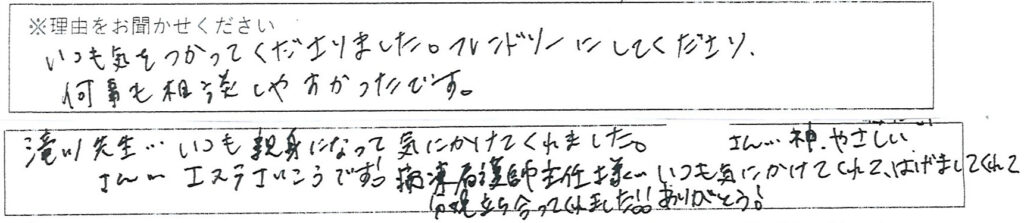 ※理由をお聞かせください
いつも気をつかってくださりました。フレンドリーにしてくださり、
何事も相談しやすかったです。
滝川先生… いつも親身になって気にかけてくれました。 さん… 神、やさしい
さん… エステさいこうです! 病棟看護師主任様… いつも気にかけてくれて、はげましてくれて
立ち合ってくれました!! ありがとう!